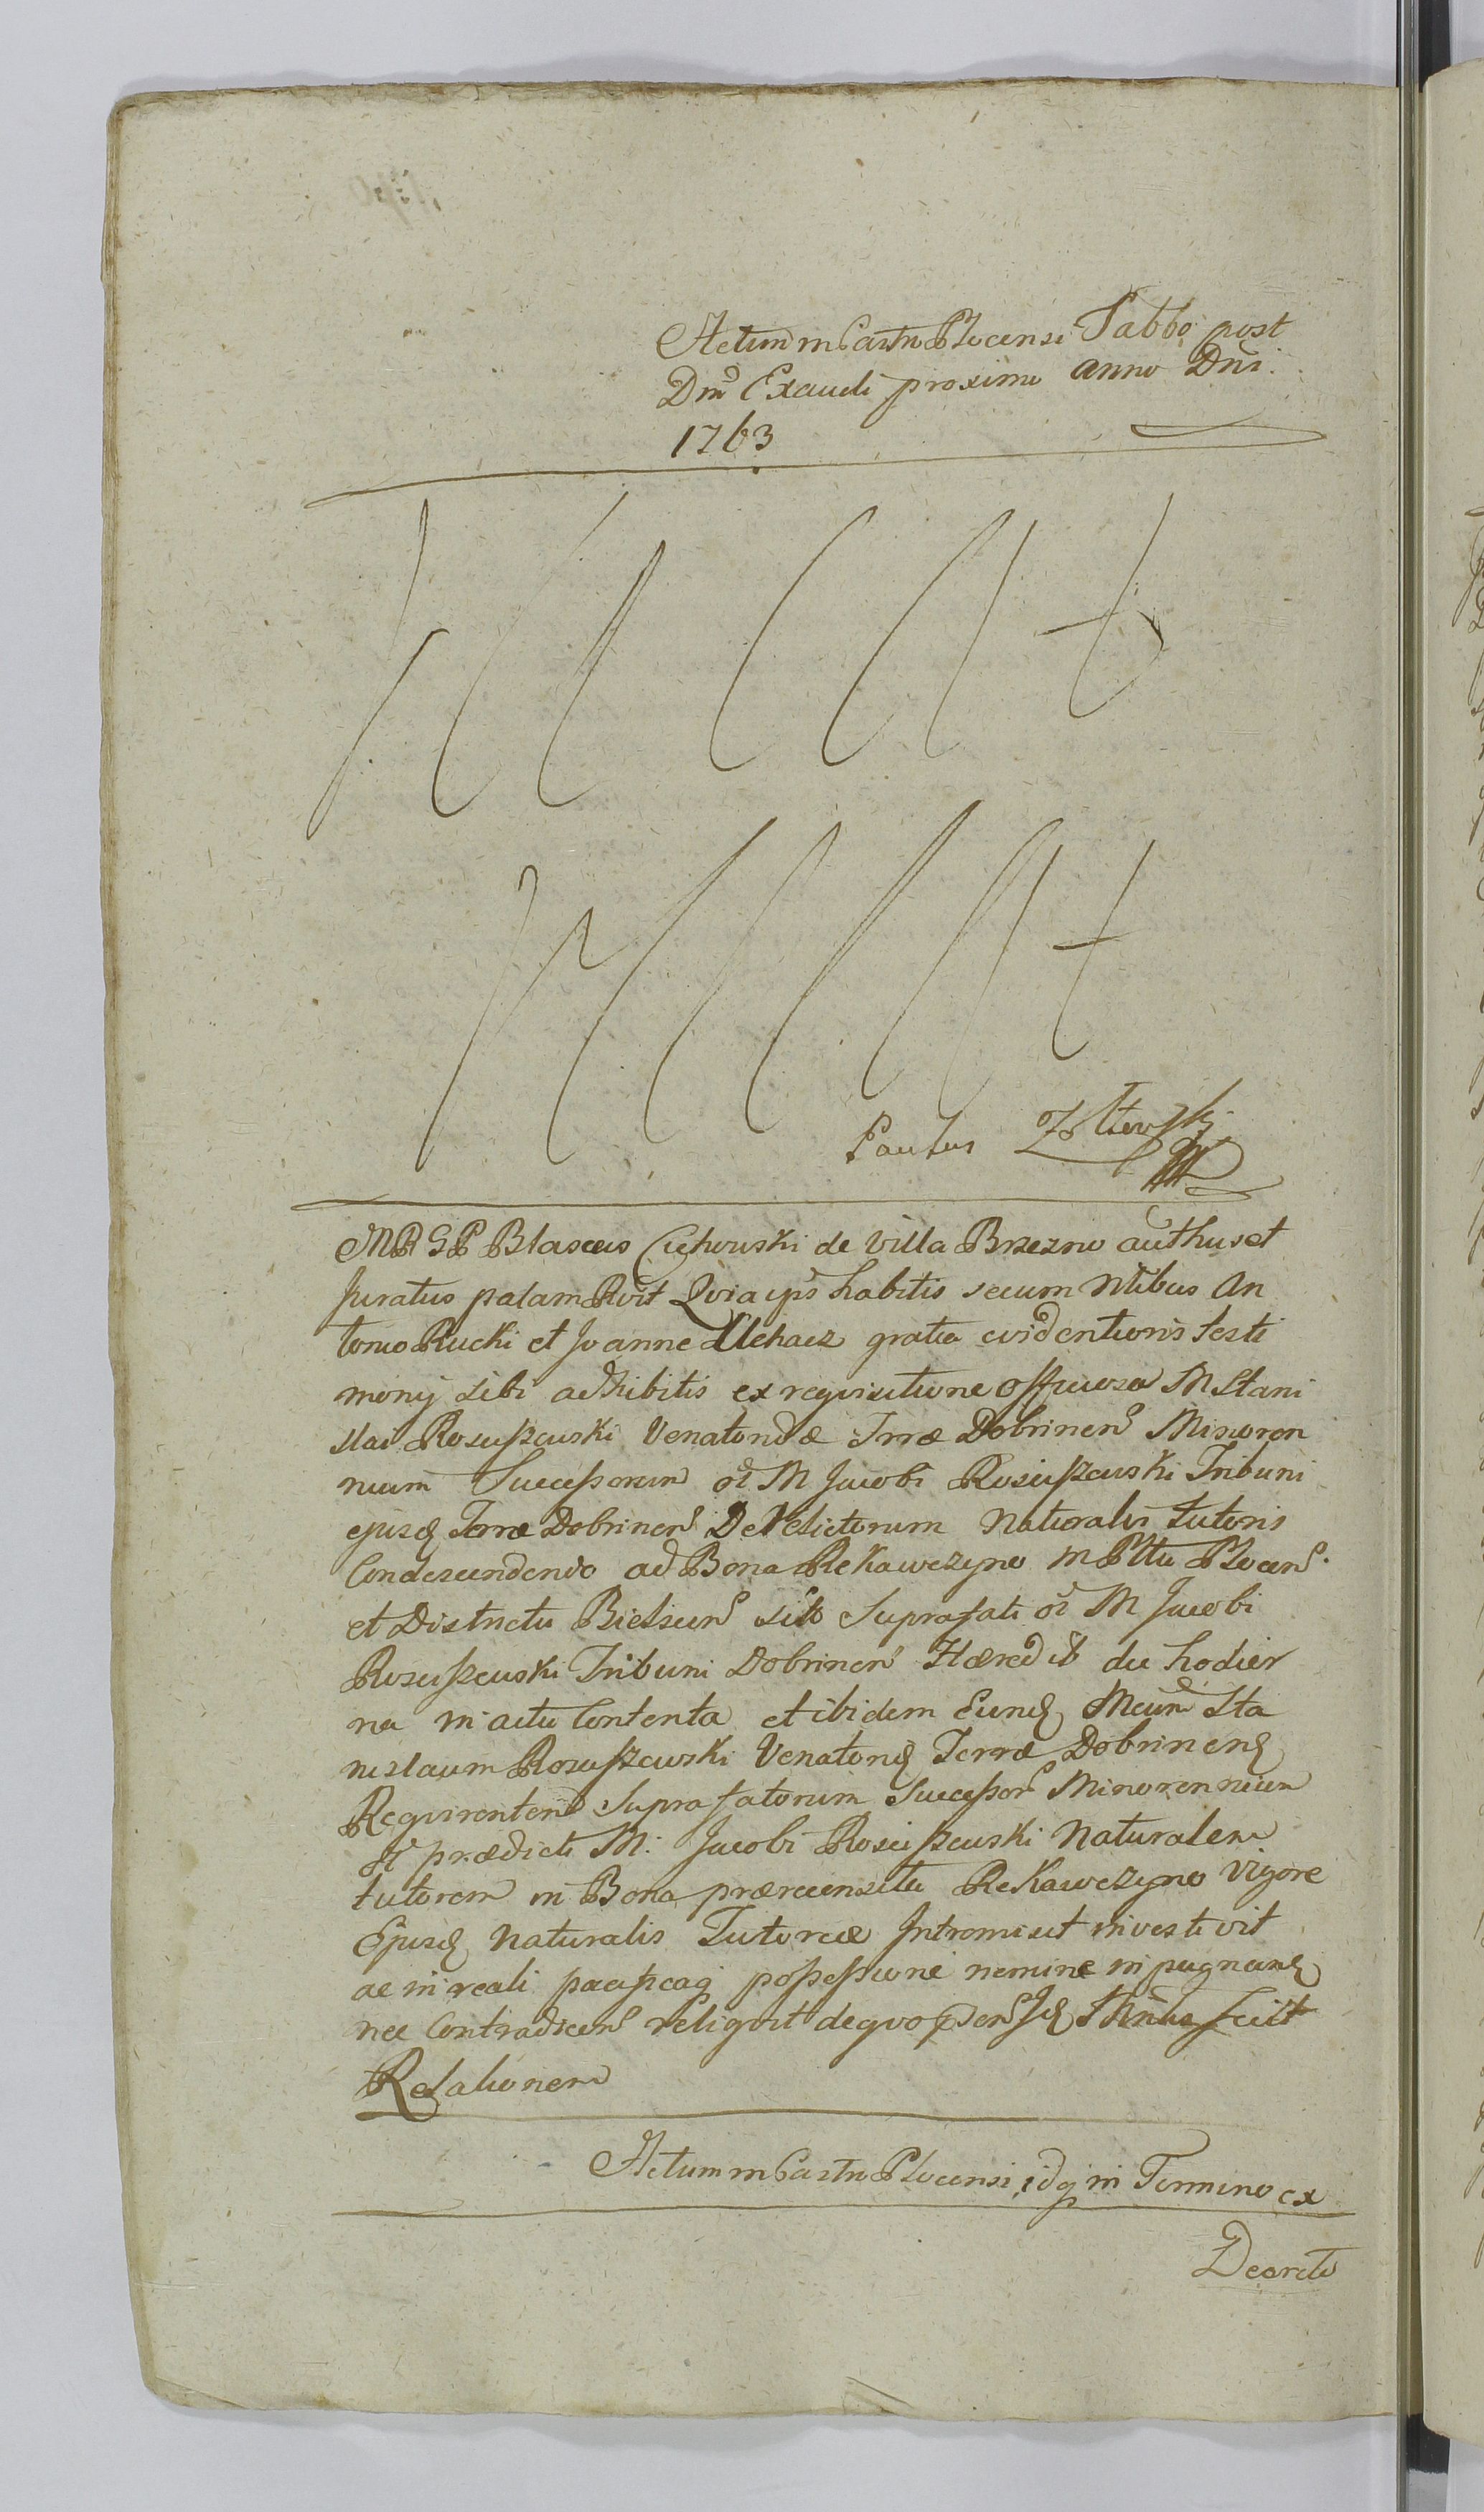 Actum in Castro Plocensi Sabbo post
Dm̃ Exaudi proximo anno Dni.
1763
Paulus Zołtowski
MRGP Blasius Cichowski de Villa Brzezno authus et
Juratus palam Rvit Quia ips habitis secum Ntibus An
tonio Rucki et Joanne gratia evidentioris testi
monij sibi adhibitis ex requisitione officiosa M Stani
slai Rosciszewski Venatoridæ Trræ Dobrinen Minoren
nium Successorum oĩ M Jacobi Rosciszewski Tribuni
ejusq Terræ Dobrinen Derelictorum Naturalis tutoris
Condescendendo ad Bona Rekawczyno in Pltu Plocen.
et Districtu Bielscen sita Suprafati oĩ M Jacobi
Rosciszewski Tribuni Dobrinen Hæredit die hodier
na in actu Contenta et ibidem Eundq Mcum Sta
nislaum Rosciszewski Venatorid Terræ Dobrinenq
Requirentem Suprafatorum Successor Minorennium
oĩ prædicti M. Jacobi Rosciszewski Naturalem
tutorem in Bona præreensita Rekawczyno Vigore
Ejusq Naturalis Tutoriæ Intromisit investivit
ac in reali pacificaq possessione nemine inpugnanq
nec Contradicen reliquit de quo psen fecit
Relationem
Actum in Castro Plocensi idq in Termino ex
Decreto